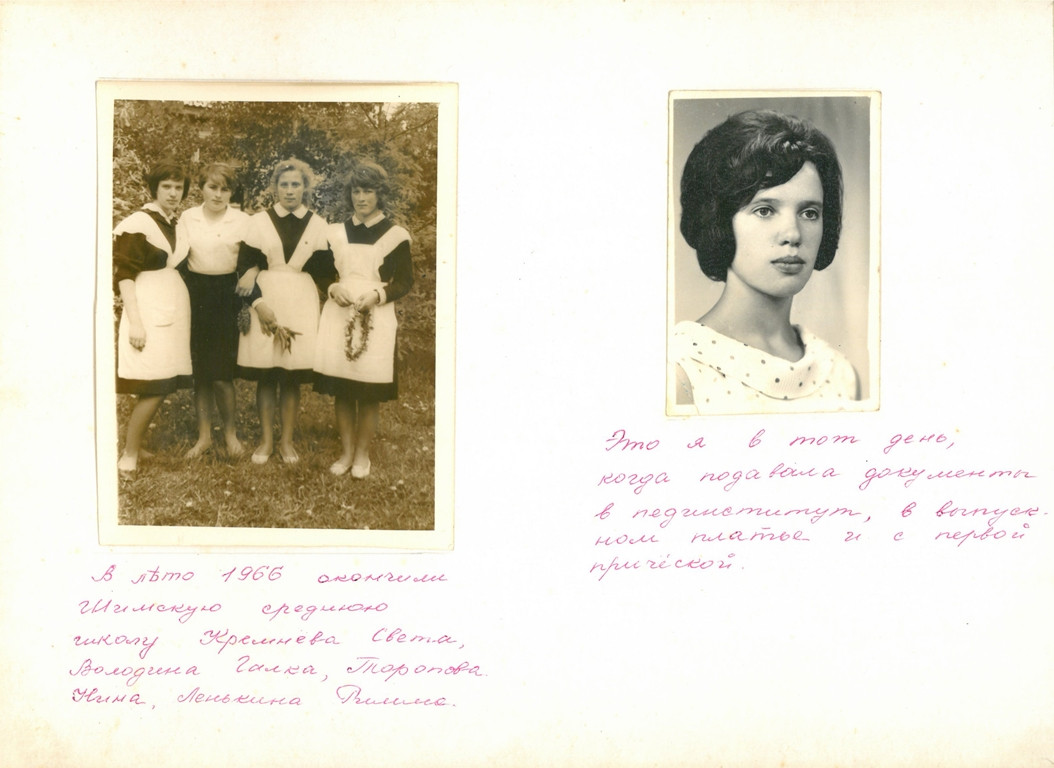 В лето 1966 окончили
Шимскую среднюю
школу Кремнёва Света,
Володина Галка, Торопова
Нина, Ленькина Римма.
Это я в тот день,
когда подавала документы
в пединститут, в выпуск-
ном платье и с первой
причёской.